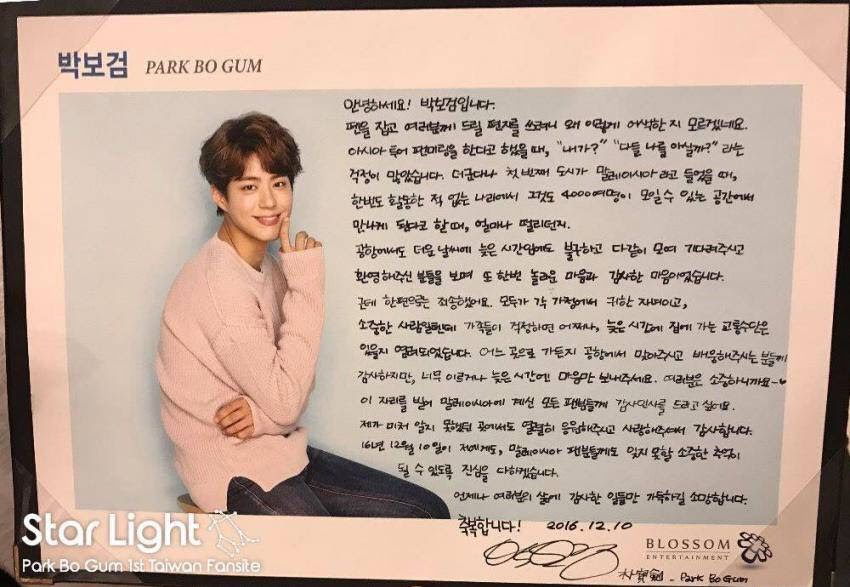 박보검 PARK BO GUM
안녕하세요! 박보검입니다.
펜을 잡고 여러분께 드릴 편지를 쓰려니 왜 이렇게 어색한 지 모르겠네요.
아시아 투어 팬미팅을 한다고 했을 때, "내가?" "다들 나를 아실까?" 라는
걱정이 많았습니다. 더군다나 첫 번째 도시가 말레이시아 라고 들었을 때,
한번도 활동한 적 없는 나라에서 그것도 4000여명이 모일 수 있는 공간에서
만나게 된다고 할 때, 얼마나 떨리던지.
공항에서도 더운 날씨에 늦은 시간임에도 불구하고 다같이 모여 기다려주시고
환영해주신 분들을 보며 또 한번 놀라운 마음과 감사한 마음이었습니다.
근데 한편으로는 죄송했어요. 모두가 각 가정에서 귀한 자녀이고,
소중한 사람일텐데 가족들이 걱정하면 어쩌나, 늦은 시간에 집에 가는 교통수단은
있을지 염려되었답니다. 어느 곳으로 가든지 공항에서 맞아주시고 배웅해주시는 분들께
감사하지만, 너무 이르거나 늦은 시간엔 마음만 보내주세요. 여러분은 소중하니까요~♥
이 자리를 빌어 말레이시아에 계신 모든 팬분들께 감사인사를 드리고 싶어요.
제가 미처 알지 못했던 곳에서도 열렬히 응원해주시고 사랑해주셔서 감사합니다.
16년 12월 10일이 저에게도, 말레이시아 팬분들께도 잊지 못할 소중한 추억이
될 수 있도록 진심을 다하겠습니다.
언제나 여러분의 삶에 감사한 일들만 가득하길 소망합니다.
축복합니다! 2016.12.10
BLOSSOM
ENTERTAINMENT
朴寶劍 - Park Bo Gum
Star Light
Park Bo Gum 1st Taiwan Fansite